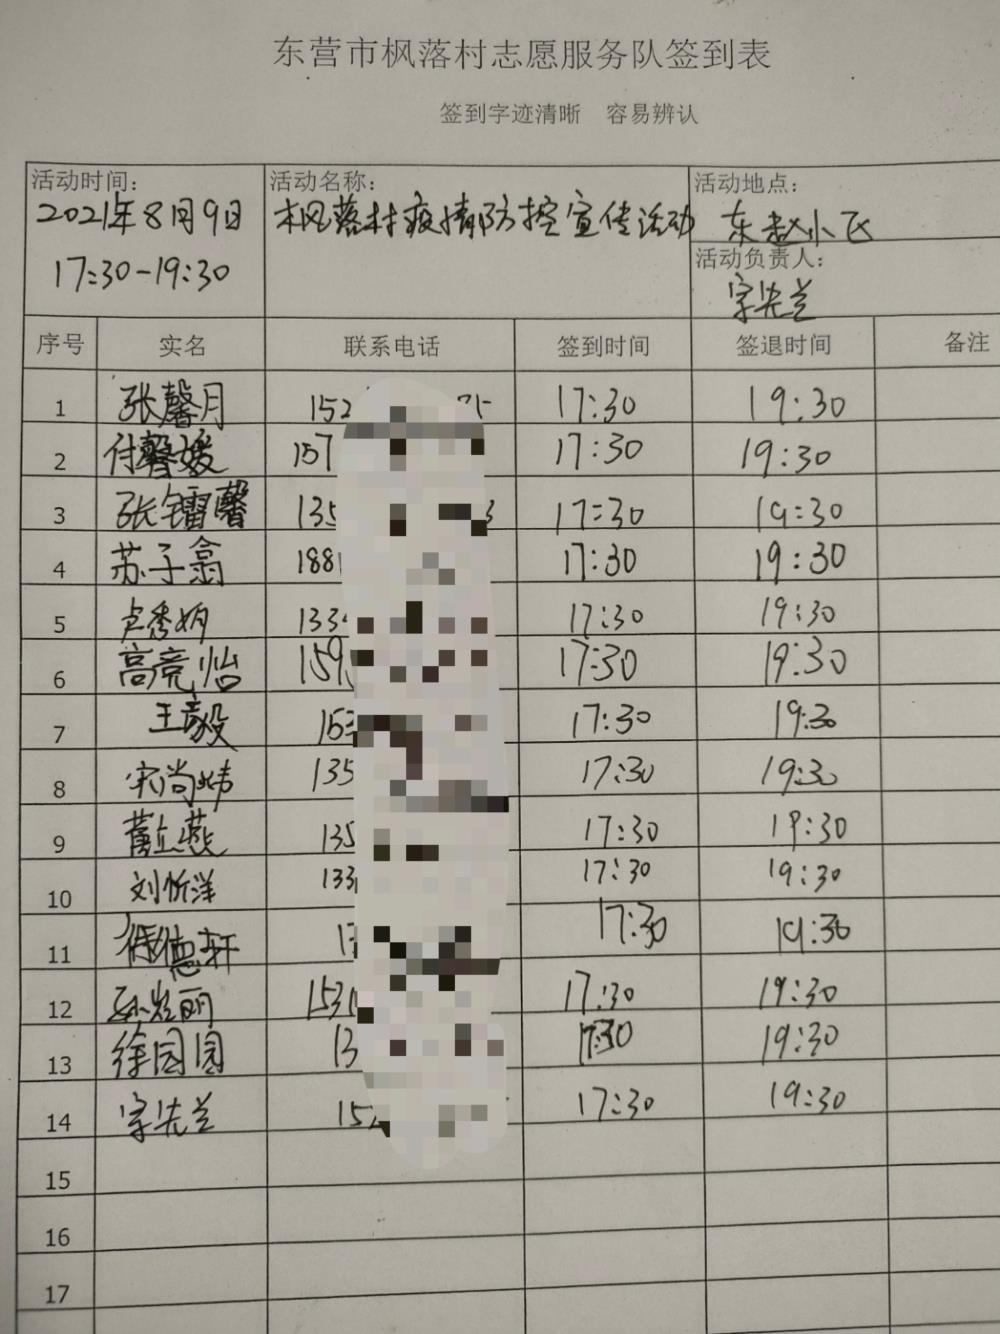 东营市枫落村志愿服务队签到表
签到字迹清晰 容易辨认
活动时间: 活动名称: 活动地点:
2021年8月9日 枫落村疫情防控宣传活动 东赵小区
17:30-19:30 活动负责人:
先兰
序号 实名 联系电话 签到时间 签退时间 备注
1 张馨月 152 17:30 19:30
2 付馨媛 157 17:30 19:30
3 张镭馨 135 3 17:30 19:30
4 苏子翕 188 17:30 19:30
5 卢秀娟 133 17:30 19:30
6 高亮怡 159 17:30 19:30
7 王毅 153 17:30 19:30
8 宋尚炜 135 17:30 19:30
9 燕 135 17:30 19:30
10 刘忻洋 133 17:30 19:30
11 德轩 13 17:30 19:30
12 孙丽 1531 17:30 19:30
13 徐园园 13 17:30 19:30
14 先兰 152 17:30 19:30
15
16
17